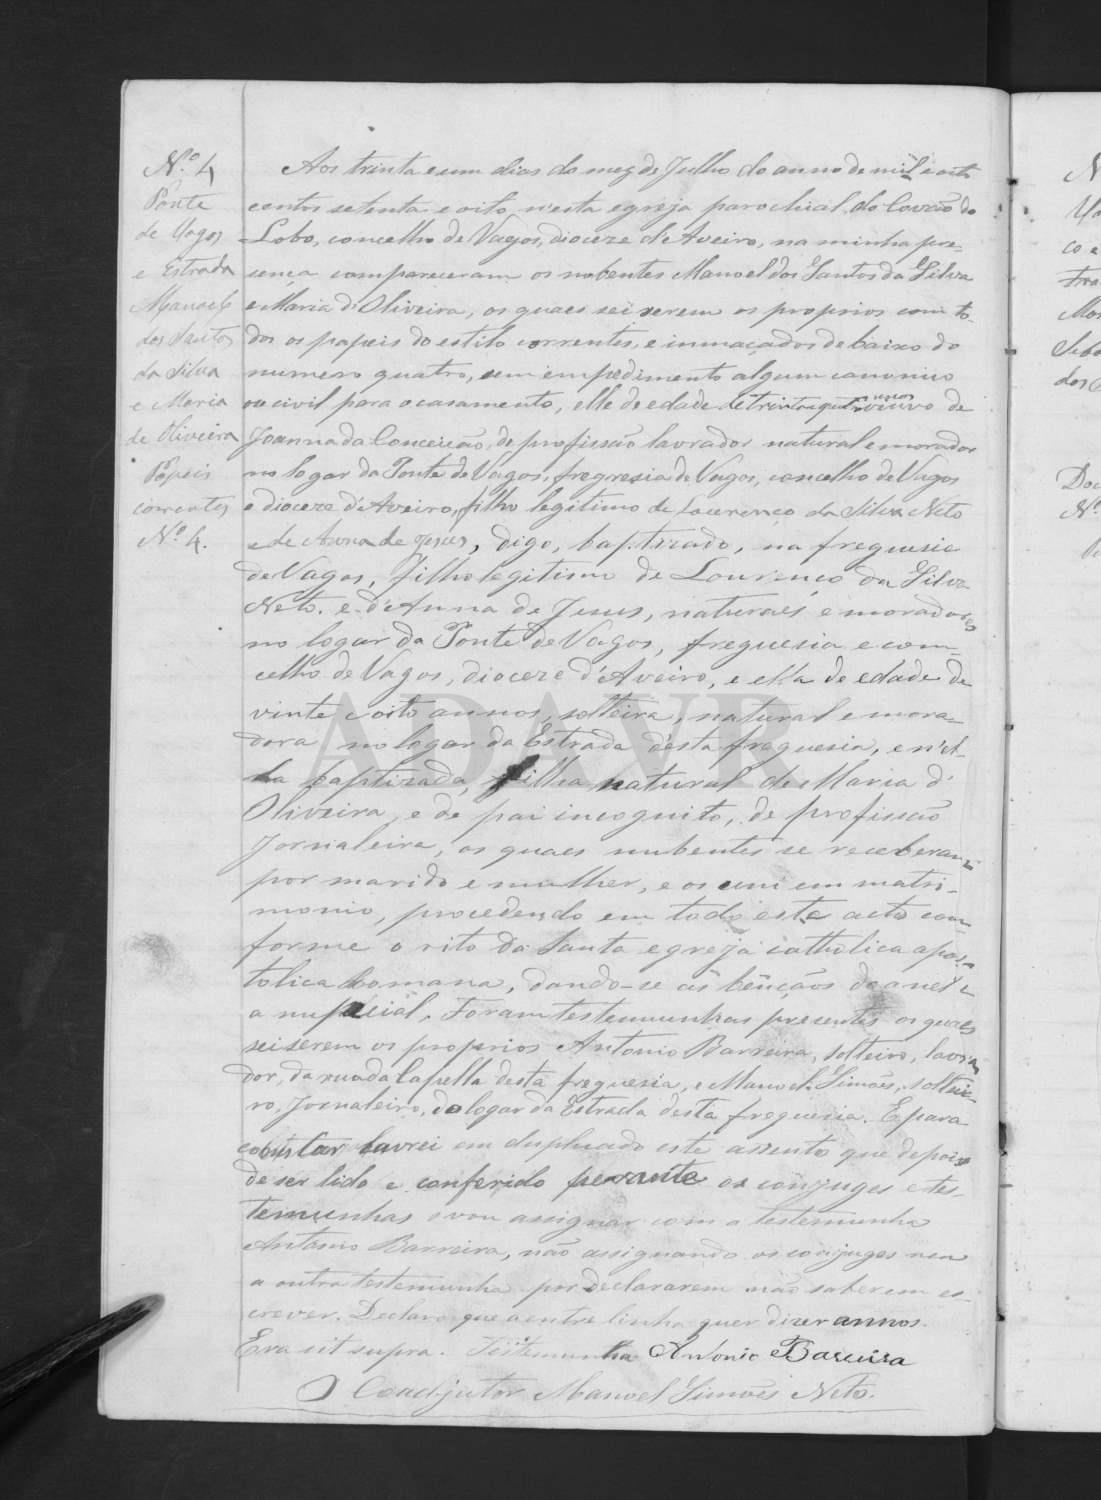 N.º 4
Ponte
de Vagos
e Estrada
Manoel
dos Santos
da Silva
e Maria
de Oliveira
Papeis
correntes
N.º 4.
Aos trinta e um dias do mez de Julho do anno de mil e oito
centos setenta e oito n'esta egreja parochial do Covão do
Lobo, concelho de Vagos, dioceze d'Aveiro, na minha pre-
sença compareceram os nubentes Manoel dos Santos da Silva
e Maria d'Oliveira, os quaes sei serem os proprios com to-
dos os papeis do estilo correntes, e inmaçados debaixo do
numero quatro, sem empedimento algum canonico
ou civil para o casamento, elle de edade de trinta e quatro viuvo de
Joanna da Conceição, de profissão lavrador natural e morador
no logar da Ponte de Vagos, fregresia de Vagos, concelho de Vagos
e dioceze d'Aveiro, filho legitimo de Lourenço da Silva Neto
e de Anna de Jesus, digo, baptizado, na freguesia
de Vagos, filho legitimo de Lourenço da Silva
Neto. e d'Anna de Jesus, naturaes e moradores
no logar da Ponte de Vagos, freguesia e con-
celho de Vagos, dioceze d'Aveiro, e ella de edade de
vinte e oito annos, solteira, natural e mora-
dora no logar da Estrada d'esta freguesia, e n'el-
la baptizada, filha natural de Maria d'
Oliveira, e de pai incognito, de profissão
Jornaleira, os quaes nubentes se receberam
por marido e mulher, e os uni em matri-
monio, procedendo em todo este acto con-
forme o rito da Santa egreja catholica apos-
tolica Romana, dando-se as bênçãos do annel e
a nupcial. Foram testemunhas presentes os quaes
sei serem os proprios Antonio Barreira, solteiro, lavra-
dor, da rua da Capella desta freguesia, e Manoel Simões, soltei-
ro, Jornaleiro, do logar da Estrada desta freguesia. E para
constar lavrei em duplicado este assento que depois
de ser lido e conferido perante os conjuges e tes-
temunhas vou assignar com a testemunha
Antonio Barreira, não assignando os conjuges nem
a outra testemunha por declararem não saberem es-
crever. Declaro que a entre linha quer dizer annos.
Era ut supra. Testemunha Antonio Barreira
O Coadjutor Manoel Simões Neto.
ADAVR